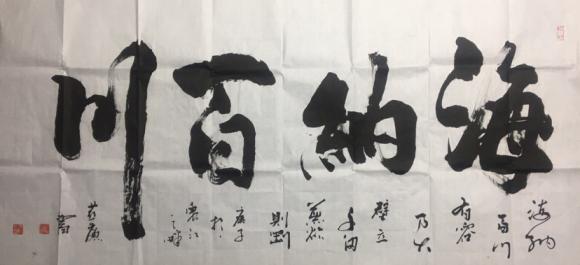 海納百川
海納
百川
有容
乃大
壁立
千仞
無欲
則剛
庚子
於
袁江
之畔